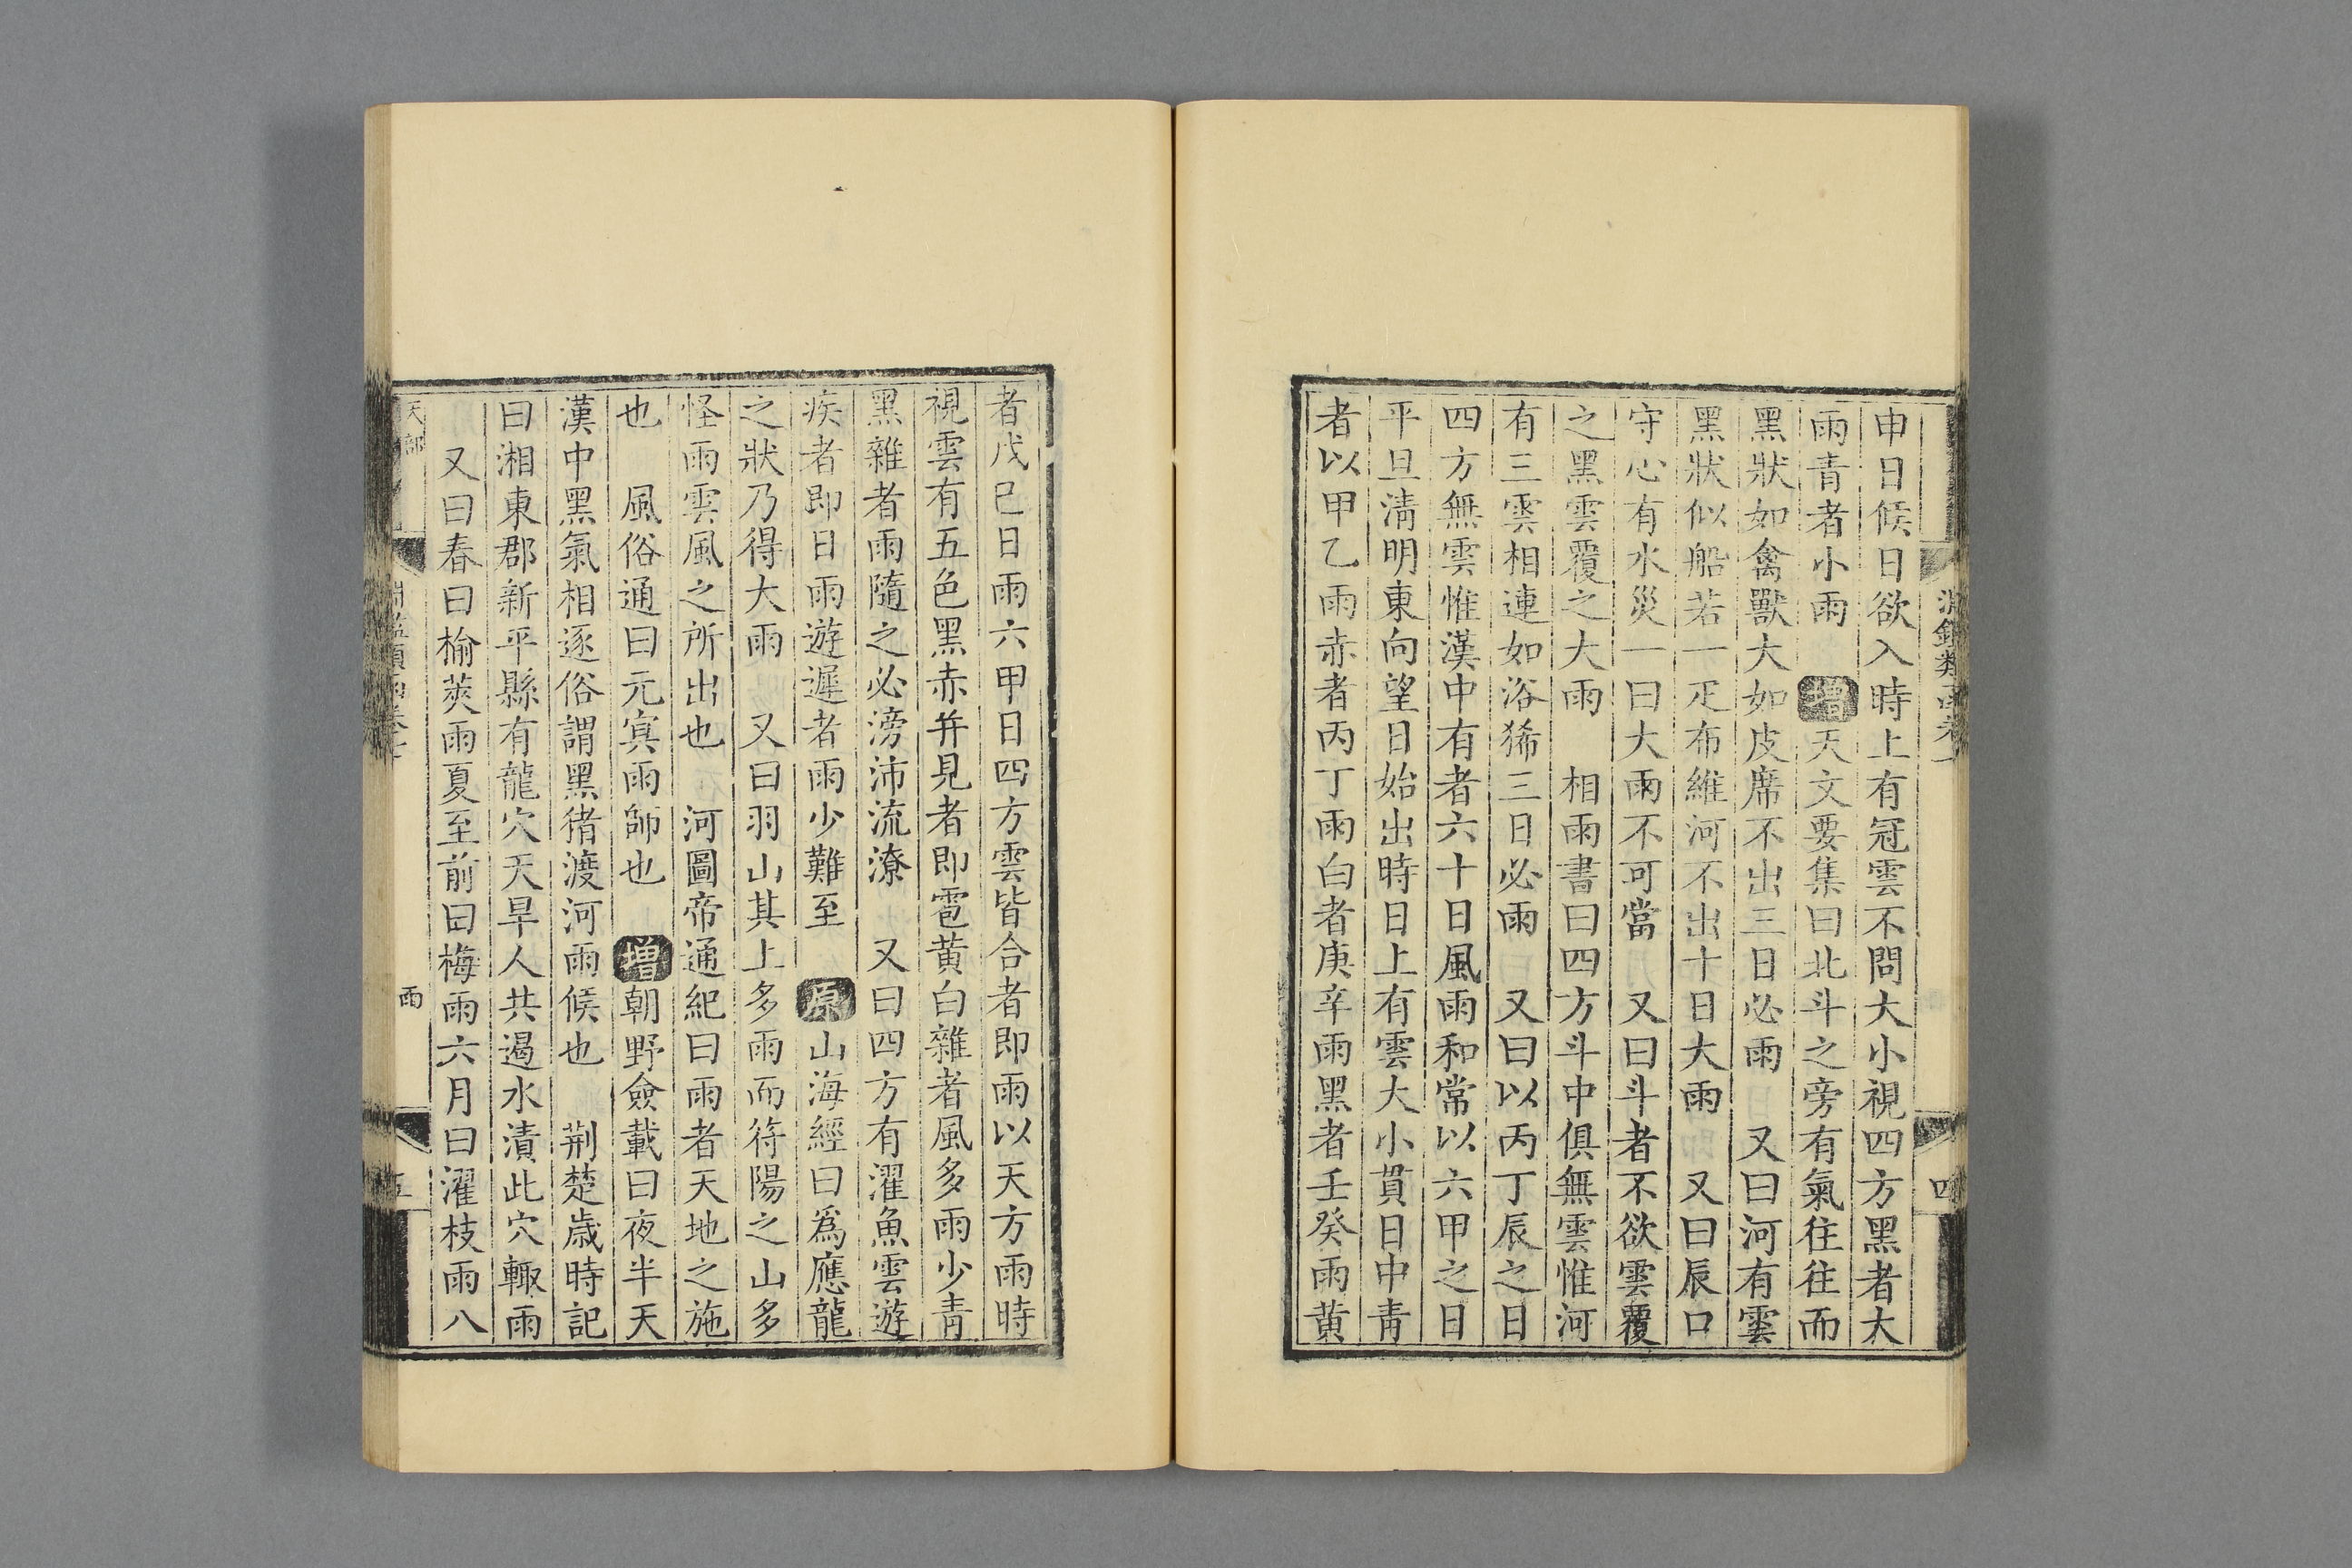 申日候日欲入時上有冠雲不問大小視四方黑者大
雨青者小雨　增天文要集曰北斗之旁有氣往往而
黑狀如禽獸大如皮席不出三日必雨　又曰河有雲
黑狀似船若一疋布維河不出十日大雨　又曰辰口
守心有水災一曰大雨不可當　又曰斗者不欲雲覆
之黑雲覆之大雨　相雨書曰四方斗中俱無雲惟河
有三雲相連如浴狶三日必雨　又曰以丙丁辰之日
四方無雲惟漢中有者六十日風雨和常以六甲之日
平旦淸明東向望日始出時日上有雲大小貫日中靑
者以甲乙雨赤者丙丁雨白者庚辛雨黑者壬癸雨黃
者戊巳日雨六甲日四方雲皆合者即雨以天方雨時
視雲有五色黑赤并見者即雹黃白雜者風多雨少靑
黑雜者雨隨之必滂沛流潦　又曰四方有濯魚雲遊
疾者即日雨遊遲者雨少難至　原山海經曰爲應龍
之狀乃得大雨　又曰羽山其上多雨而符陽之山多
怪雨雲風之所出也　河圖帝通紀曰雨者天地之施
也　風俗通曰元冥雨師也　增朝野僉載曰夜半天
漢中黑氣相逐俗謂黑猪渡河雨候也　荆楚歲時記
曰湘東郡新平縣有龍穴天旱人共遏水漬此穴輙雨
又曰春曰榆莢雨夏至前曰梅雨六月曰濯枝雨八
天部
雨
五
四